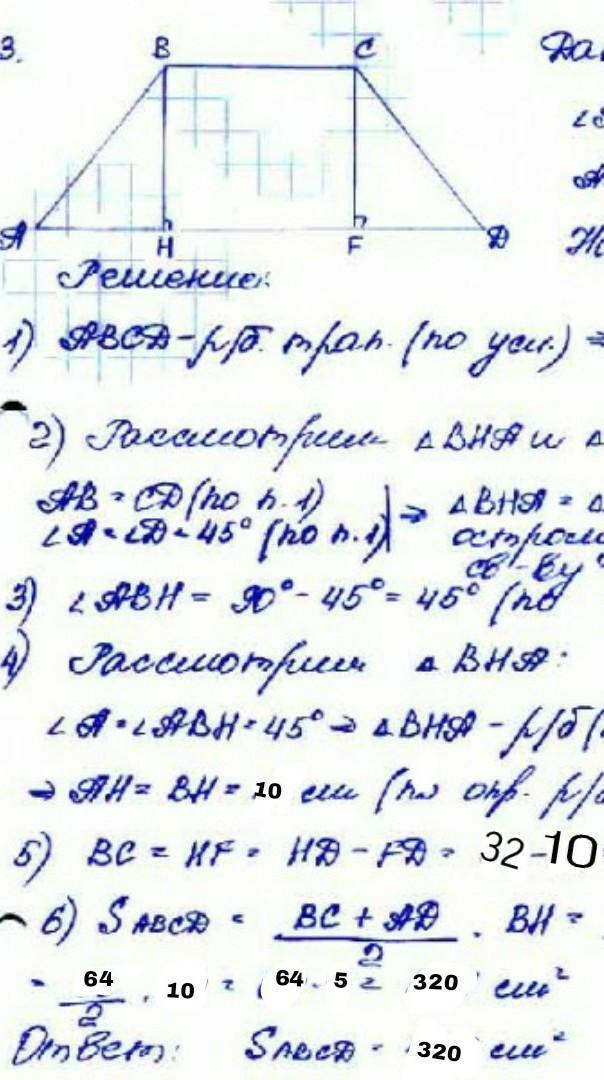 3.
B C
Дан
A H F D
Решение:
1) ABCD - р/б. трап. (по усл.) ⇒
2) Рассмотрим △BHA и △
AB = CD (по п. 1)
∠A = ∠D = 45° (по п. 1) ⇒ △BHA = △
остром
св-ву
3) ∠ABH = 90° - 45° = 45° (по
4) Рассмотрим △BHA:
∠A = ∠ABH = 45° ⇒ △BHA - р/б (
⇒ AH = BH = 10 см (по опр. р/б
5) BC = HF = HD - FD = 32-10
6) SABCD = BC + AD / 2 · BH =
= 64 / 2 · 10 = 64 · 5 = 320 см²
Ответ: SABCD = 320 см²